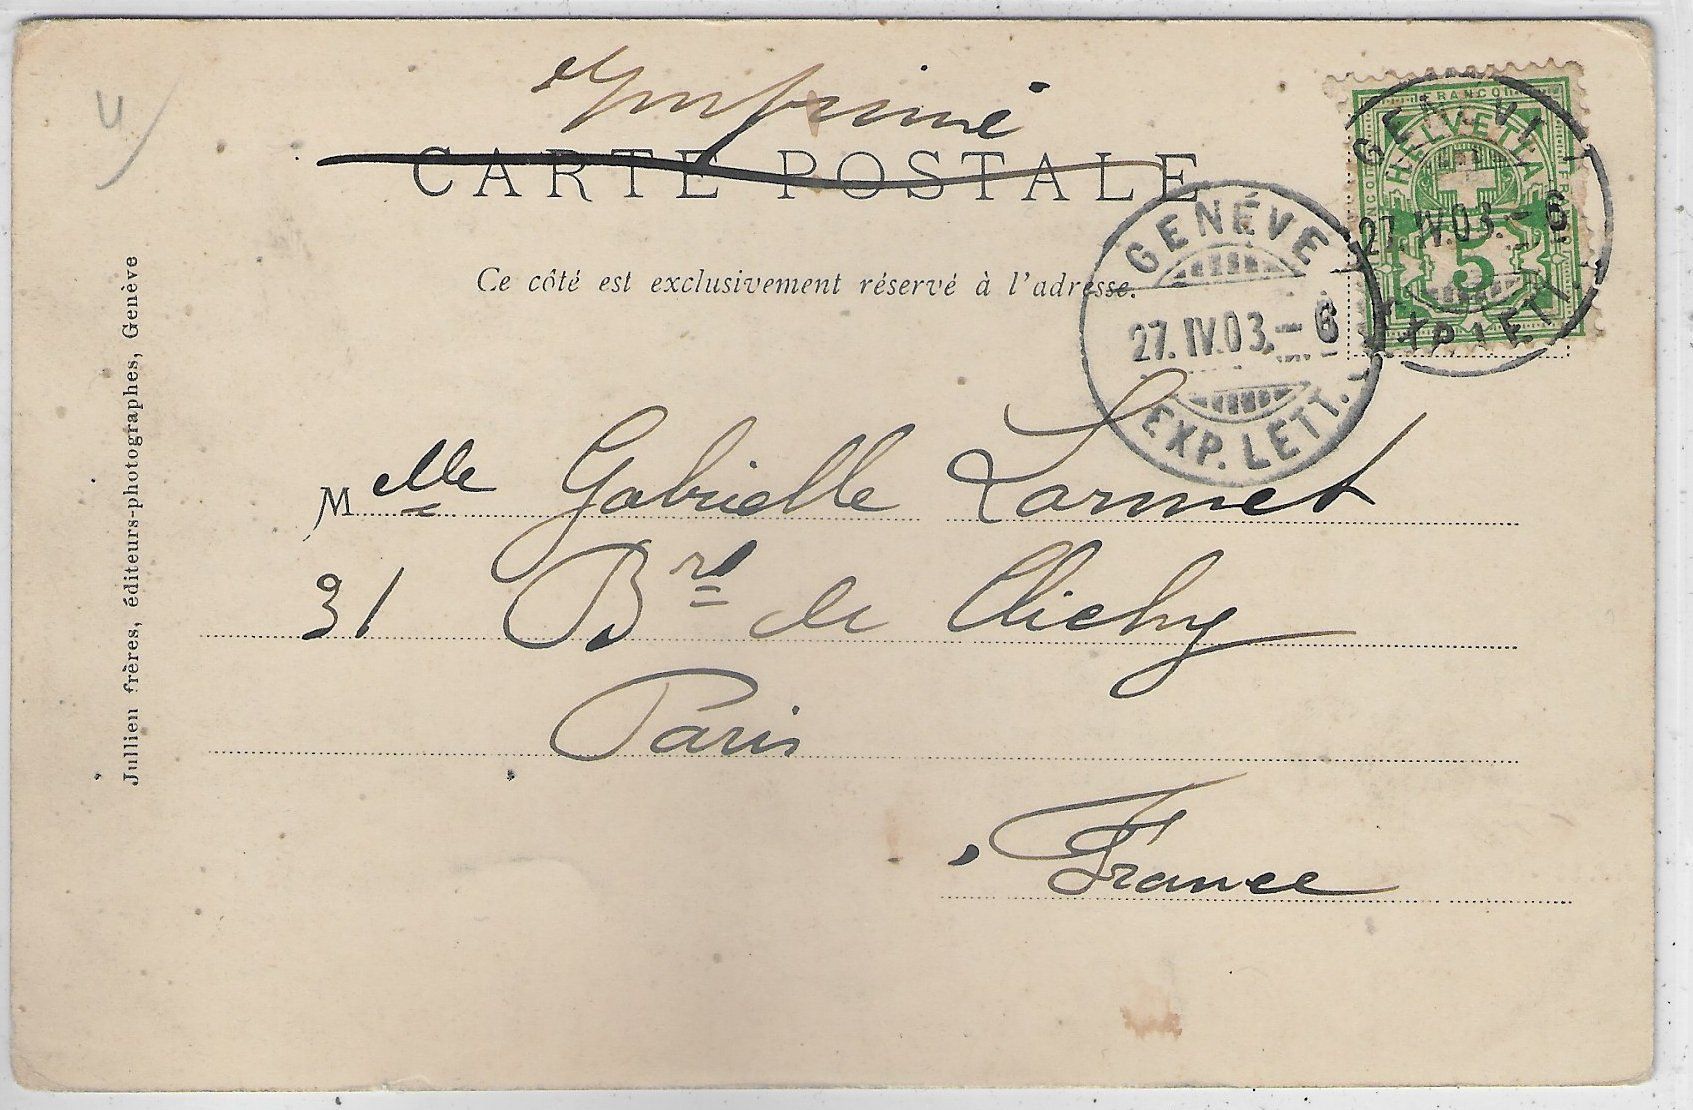 Imprimé
CARTE POSTALE
Ce côté est exclusivement réservé à l'adresse.
FRANCO
HELVETIA
5
GENÈVE
27.IV.03.–6
EXP. LETT.
GENÈVE
27.IV.03.–6
EXP. LETT.
Melle Gabrielle Lormet
31 Brd de Clichy
Paris
France
Jullien frères, éditeurs-photographes, Genève